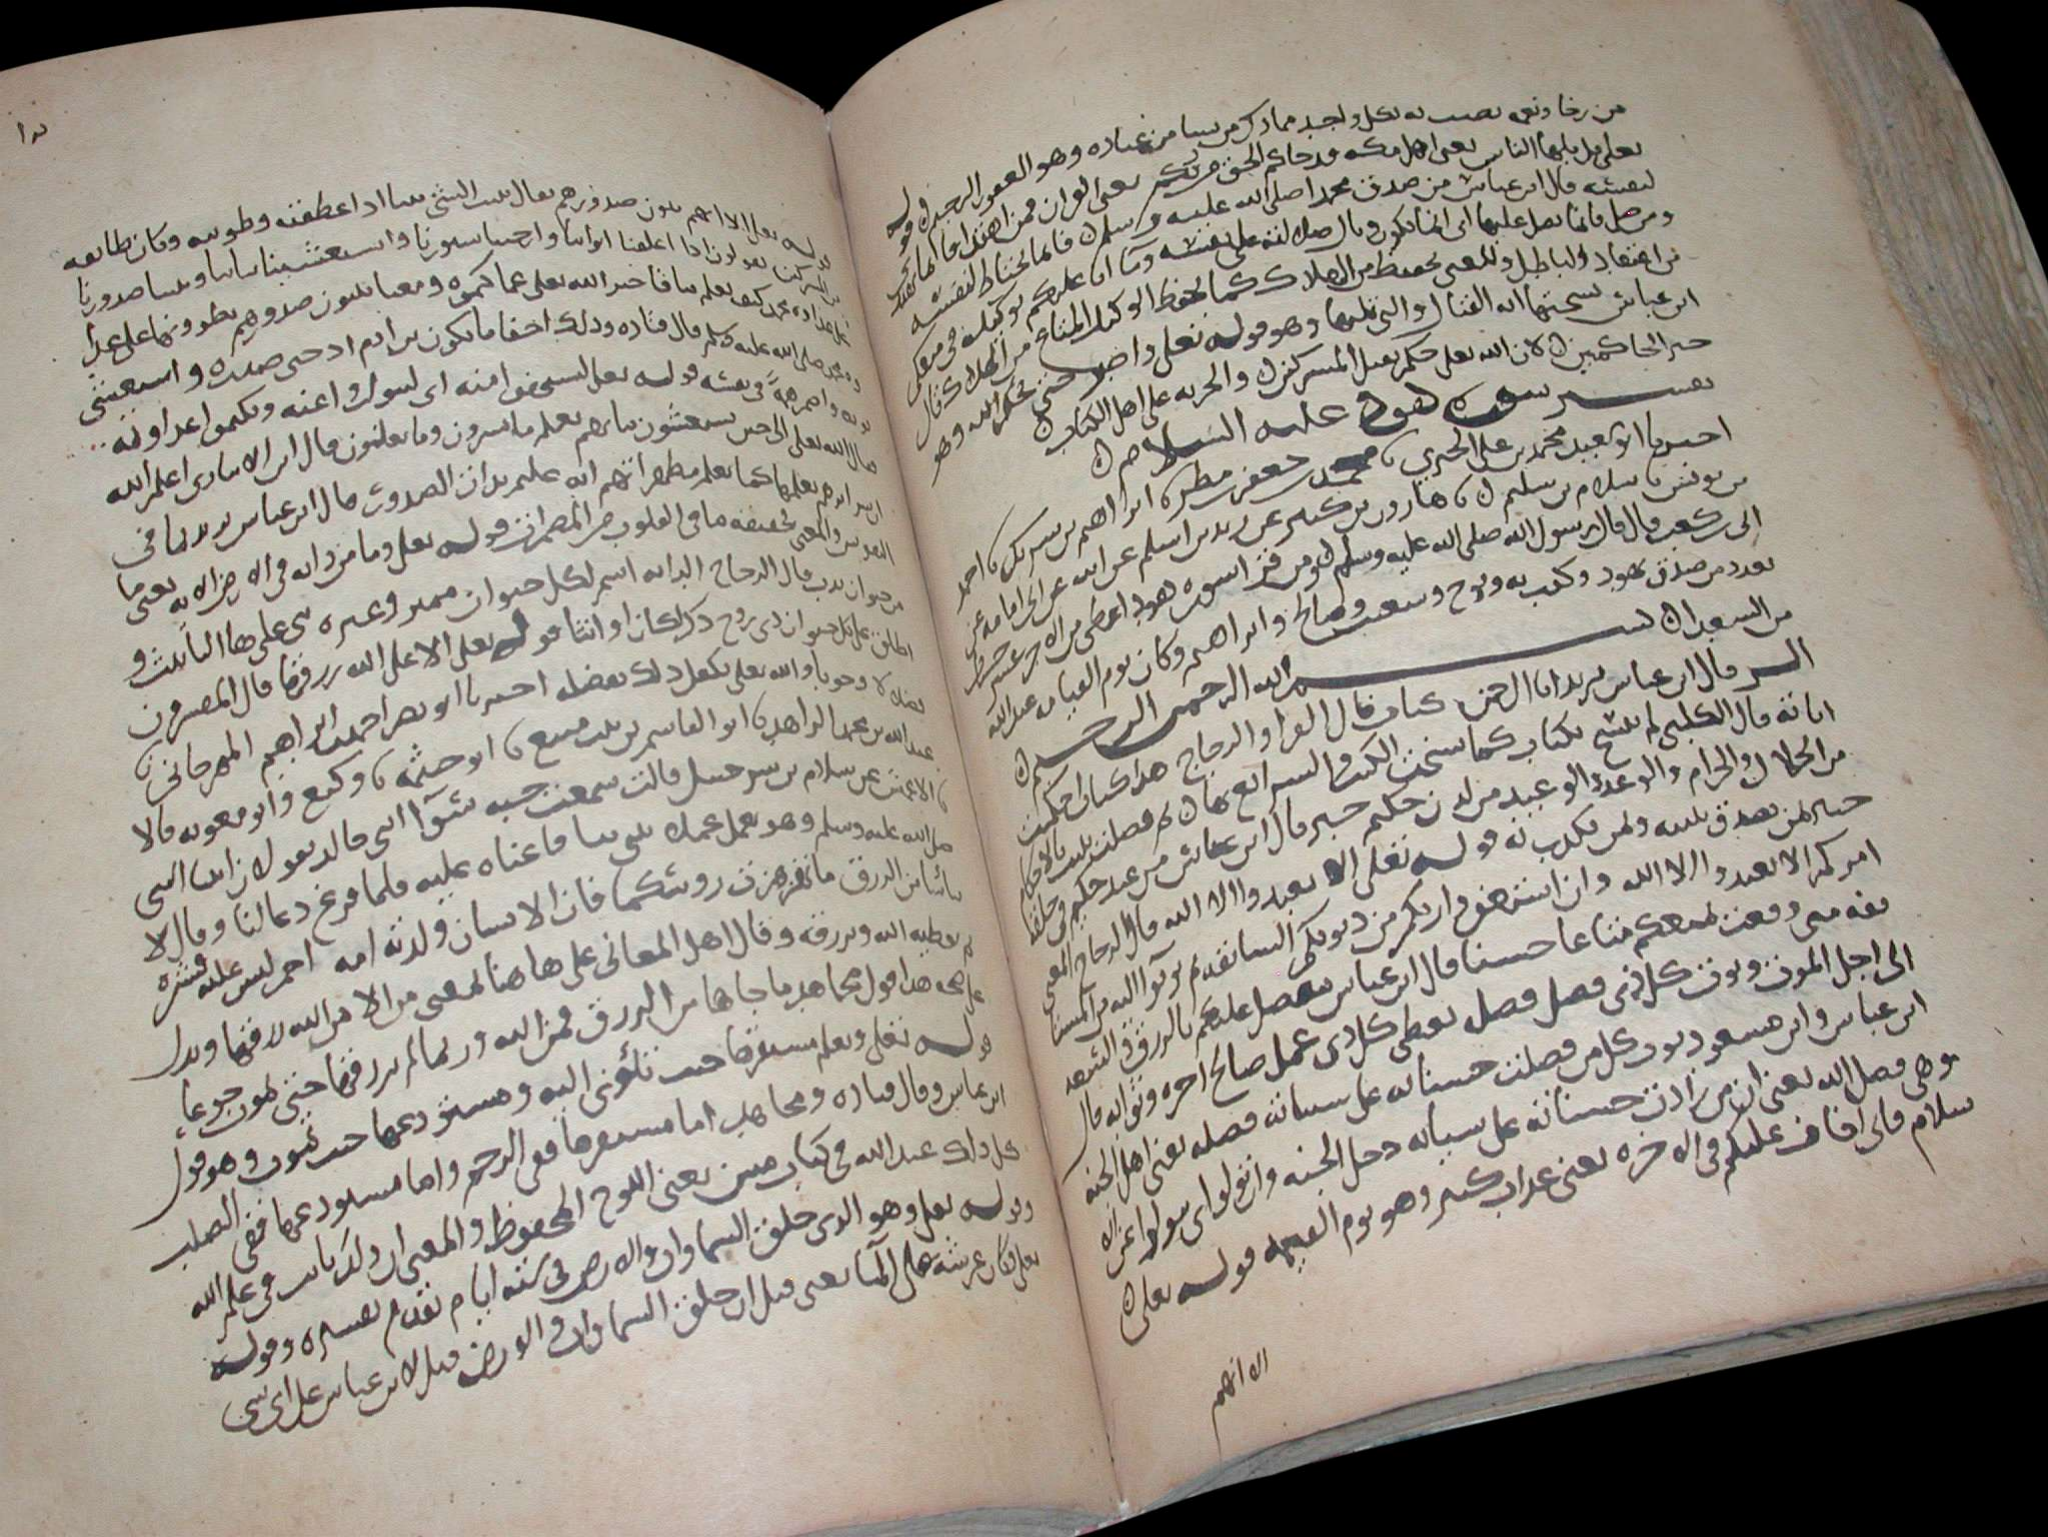 من رخا ونعمه يصيب به بكل واحد مما ذكر من يشا من عباده وهو الغفور الرحيم قوله
تعلى قل يايها الناس يعنى اهل مكه قد جاكم الحق من ربكم يعنى القران فمن اهتدى فانما يهتدى
لنفسه قال ابن عباس من صدق محمدا صلى الله عليه وسلم فانما يحتاط لنفسه
ومن ضل فانما يضل عليها اى انما يكون وبال ضلالته على نفسه وما انا عليكم بوكيل
من اعتقاد الباطل والمعنى بحفيظ من الهلاك كما يحفظ الوكيل المتاع من الهلاك قال
ابن عباس نسختها ايه القتال والتى تليها وهو قوله تعلى واصبر حتى يحكم الله وهو
خير الحاكمين لان الله تعلى حكم بقتل المشركين والجزيه على اهل الكتاب
تفسير سوره هود عليه السلام
اخبرنا ابو سعيد محمد بن على الحيرى نا محمد بن جعفر بن مطر نا ابراهيم بن شريك نا احمد
بن يونس نا سلام بن سليم نا هارون بن كثير عن زيد بن اسلم عن ابيه عن ابى امامه عن
ابى بن كعب قال قال رسول الله صلى الله عليه وسلم ومن قرا سوره هود اعطى من الاجر عشر حسنات
بعدد من صدق بهود وكذب به ونوح وشعيب وصالح وابراهيم وكان يوم القيامه عند الله
من السعداء بسم الله الرحمن الرحيم
الر قال ابن عباس يريد انا الرحمن كتاب قال الفرا والزجاج هذا كتاب احكمت
اياته قال الكلبى لم ينسخ بكتاب كما نسخت الكتب والشرائع بها ثم فصلت بينت بالاحكام
من الحلال والحرام والوعد والوعيد من لدن حكيم خبير قال ابن عباس من عند حكيم فى خلقه
خبير لمن يصدق بنبيه ولمن يكذب به قوله تعلى الا تعبدوا الا الله قال الزجاج المعنى
امركم الا تعبدوا الا الله وان استغفروا ربكم من ذنوبكم السابقه ثم توبوا اليه من المستانفه
متى وقعت يمتعكم متاعا حسنا قال ابن عباس يتفضل عليكم بالرزق والسعه
الى اجل الموت ويوت كل ذى فضل فضله يعطى كل ذى عمل صالح اجره وثوابه قال
ابن عباس وابن مسعود يريد كل من فضلت حسناته على سياته فضله يعنى اهل الجنه
وهى فضل الله يعنى ان من زادت حسناته على سياته دخل الجنه وان تولوا اى تتولوا عن الا
سلام فانى اخاف عليكم فى الاخره يعنى عذاب كبير وهو يوم القيمه قوله تعلى
الا انهم
قوله تعلى الا انهم يثنون صدورهم يقال ثنيت الشى ثنيا اذا عطفته وطويته وكان طايفه
من المشركين يقولون اذا اغلقنا ابوابنا وارخينا ستورنا واستغشينا ثيابنا وثنينا صدورنا
على عداوه محمد كيف يعلم بنا فاخبر الله تعلى عما كتموه ومعنا يثنون صدورهم يطوونها على عداوه
محمد صلى الله عليه وسلم قال قتاده وذلك اخفا ما يكون بن ادم اذ حنى صدره واستغشى
ثوبه واضمر همه فى نفسه قوله تعلى ليستخفوا منه اى ليتواروا عنه ويكتموا عداوته
فقال الله تعلى الا حين يستغشون ثيابهم يعلم ما يسرون وما يعلنون قال ابن الانبارى اعلم الله
ان سرايرهم يعلمها كما يعلم مظهراتهم انه عليم بذات الصدور قال ابن عباس يريد بما فى
النفوس والمعنى بحقيقه ما فى القلوب من المضمرات قوله تعلى وما من دابه فى الارض الايه يعنى ما
من حيوان يدب قال الزجاج الدابه اسم لكل حيوان مميز وغيره بنى على هاء التانيث و
اطلق على كل حيوان ذى روح ذكرا كان او انثا قوله تعلى الا على الله رزقها قال المفسرون
فضلا لا وجوبا والله تعلى تكفل ذلك بفضله اخبرنا ابو نصر احمد بن ابراهيم المهرجانى نا
عبد الله بن محمد الزاهد نا ابو القاسم بن بنت منيع نا ابو خيثمه نا وكيع وابو معويه قالا
نا الاعمش عن سلام بن شرحبيل قالت سمعت حبه وسوا ابنى خالد يقولان اتينا النبى
صلى الله عليه وسلم وهو يعمل عملا يبنى بنيا فاعناه عليه فلما فرغ دعا لنا وقال لا
تيئسا من الرزق ما تهزهزت روسكما فان الانسان ولدته امه احمر ليس عليه قشره
ثم يعطيه الله ويرزقه وقال اهل المعانى على هاهنا بمعنى من الا من الله رزقها ويدل
على صحه هذا قول مجاهد ما جاها من الرزق فمن الله وربما لم يرزقها حتى تموت جوعا
قوله تعلى ويعلم مستقرها حيث تاوى اليه ومستودعها حيث تموت وهو قول
ابن عباس وقال قتاده ومجاهد اما مستقرها ففى الرحم واما مستودعها ففى الصلب
كل ذلك عند الله فى كتاب مبين يعنى اللوح المحفوظ والمعنى ان ذلك ثابت فى علم الله
وقوله تعلى وهو الذى خلق السماوات والارض فى سته ايام تقدم تفسيره وقوله
تعلى وكان عرشه على الما يعنى قبل ان خلق السماوات والارض قيل لابن عباس على اى شى